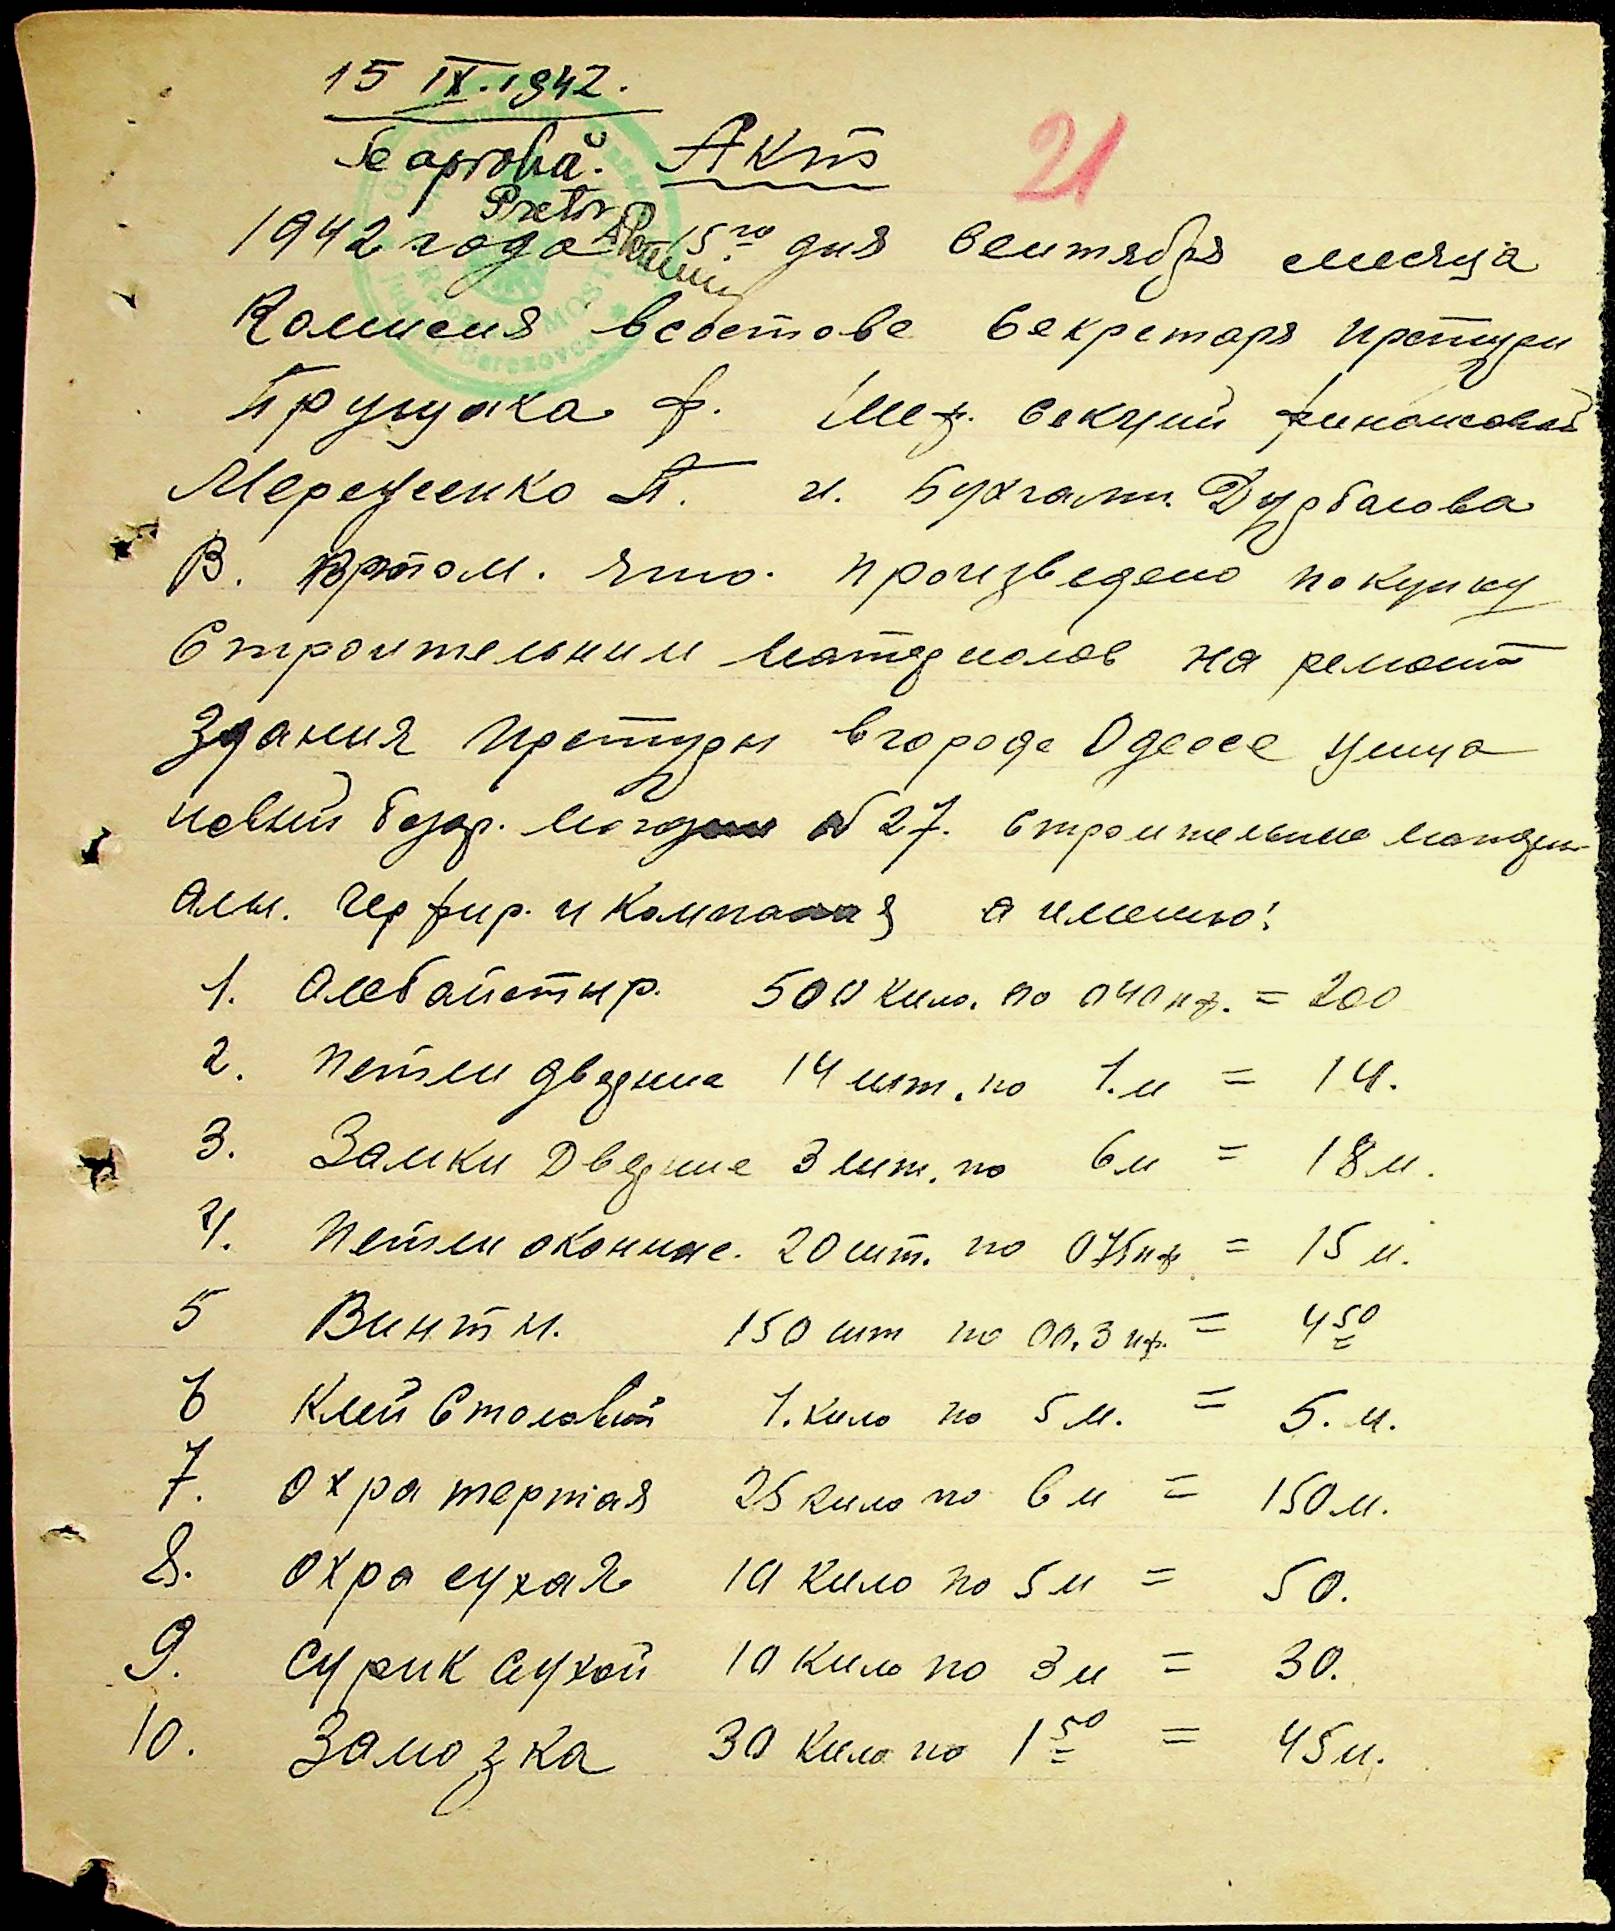 15 IX.1942.
Se aprobă. Акт 21
Pretor
1942 года 15го дня Сентября месяца
Комисия всоставе Секретаря претуры
Ф. Шеф. Секций финансовой
П. и. Бухгалт.
В. втом. что. произведено покупку
Строительним Материалов на ремонт
Здания претуры вгороде Одессе улица
новый базар. Магазин № 27. Строительние матери-
алы. и Компания а именно:
1. Алебайстыр. 500 кило. по 040 пф. = 200
2. Петли дверние 14 шт. по 1.м = 14.
3. Замки Дверние 3 шт. по 6м = 18м.
4. Петли оконние. 20 шт. по 075пф = 15 м.
5 Винты. 150 шт по 00.3 пф. = 4 50
6 Клей Столовый 1. кило по 5 м. = 5. м.
7. Охра тертая 25 кило по 6 м = 150 м.
8. Охра сухая 10 кило по 5 м = 50.
9. Сурик Сухой 10 кило по 3 м = 30.
10. Замозка 30 кило по 1 50 = 45 м.